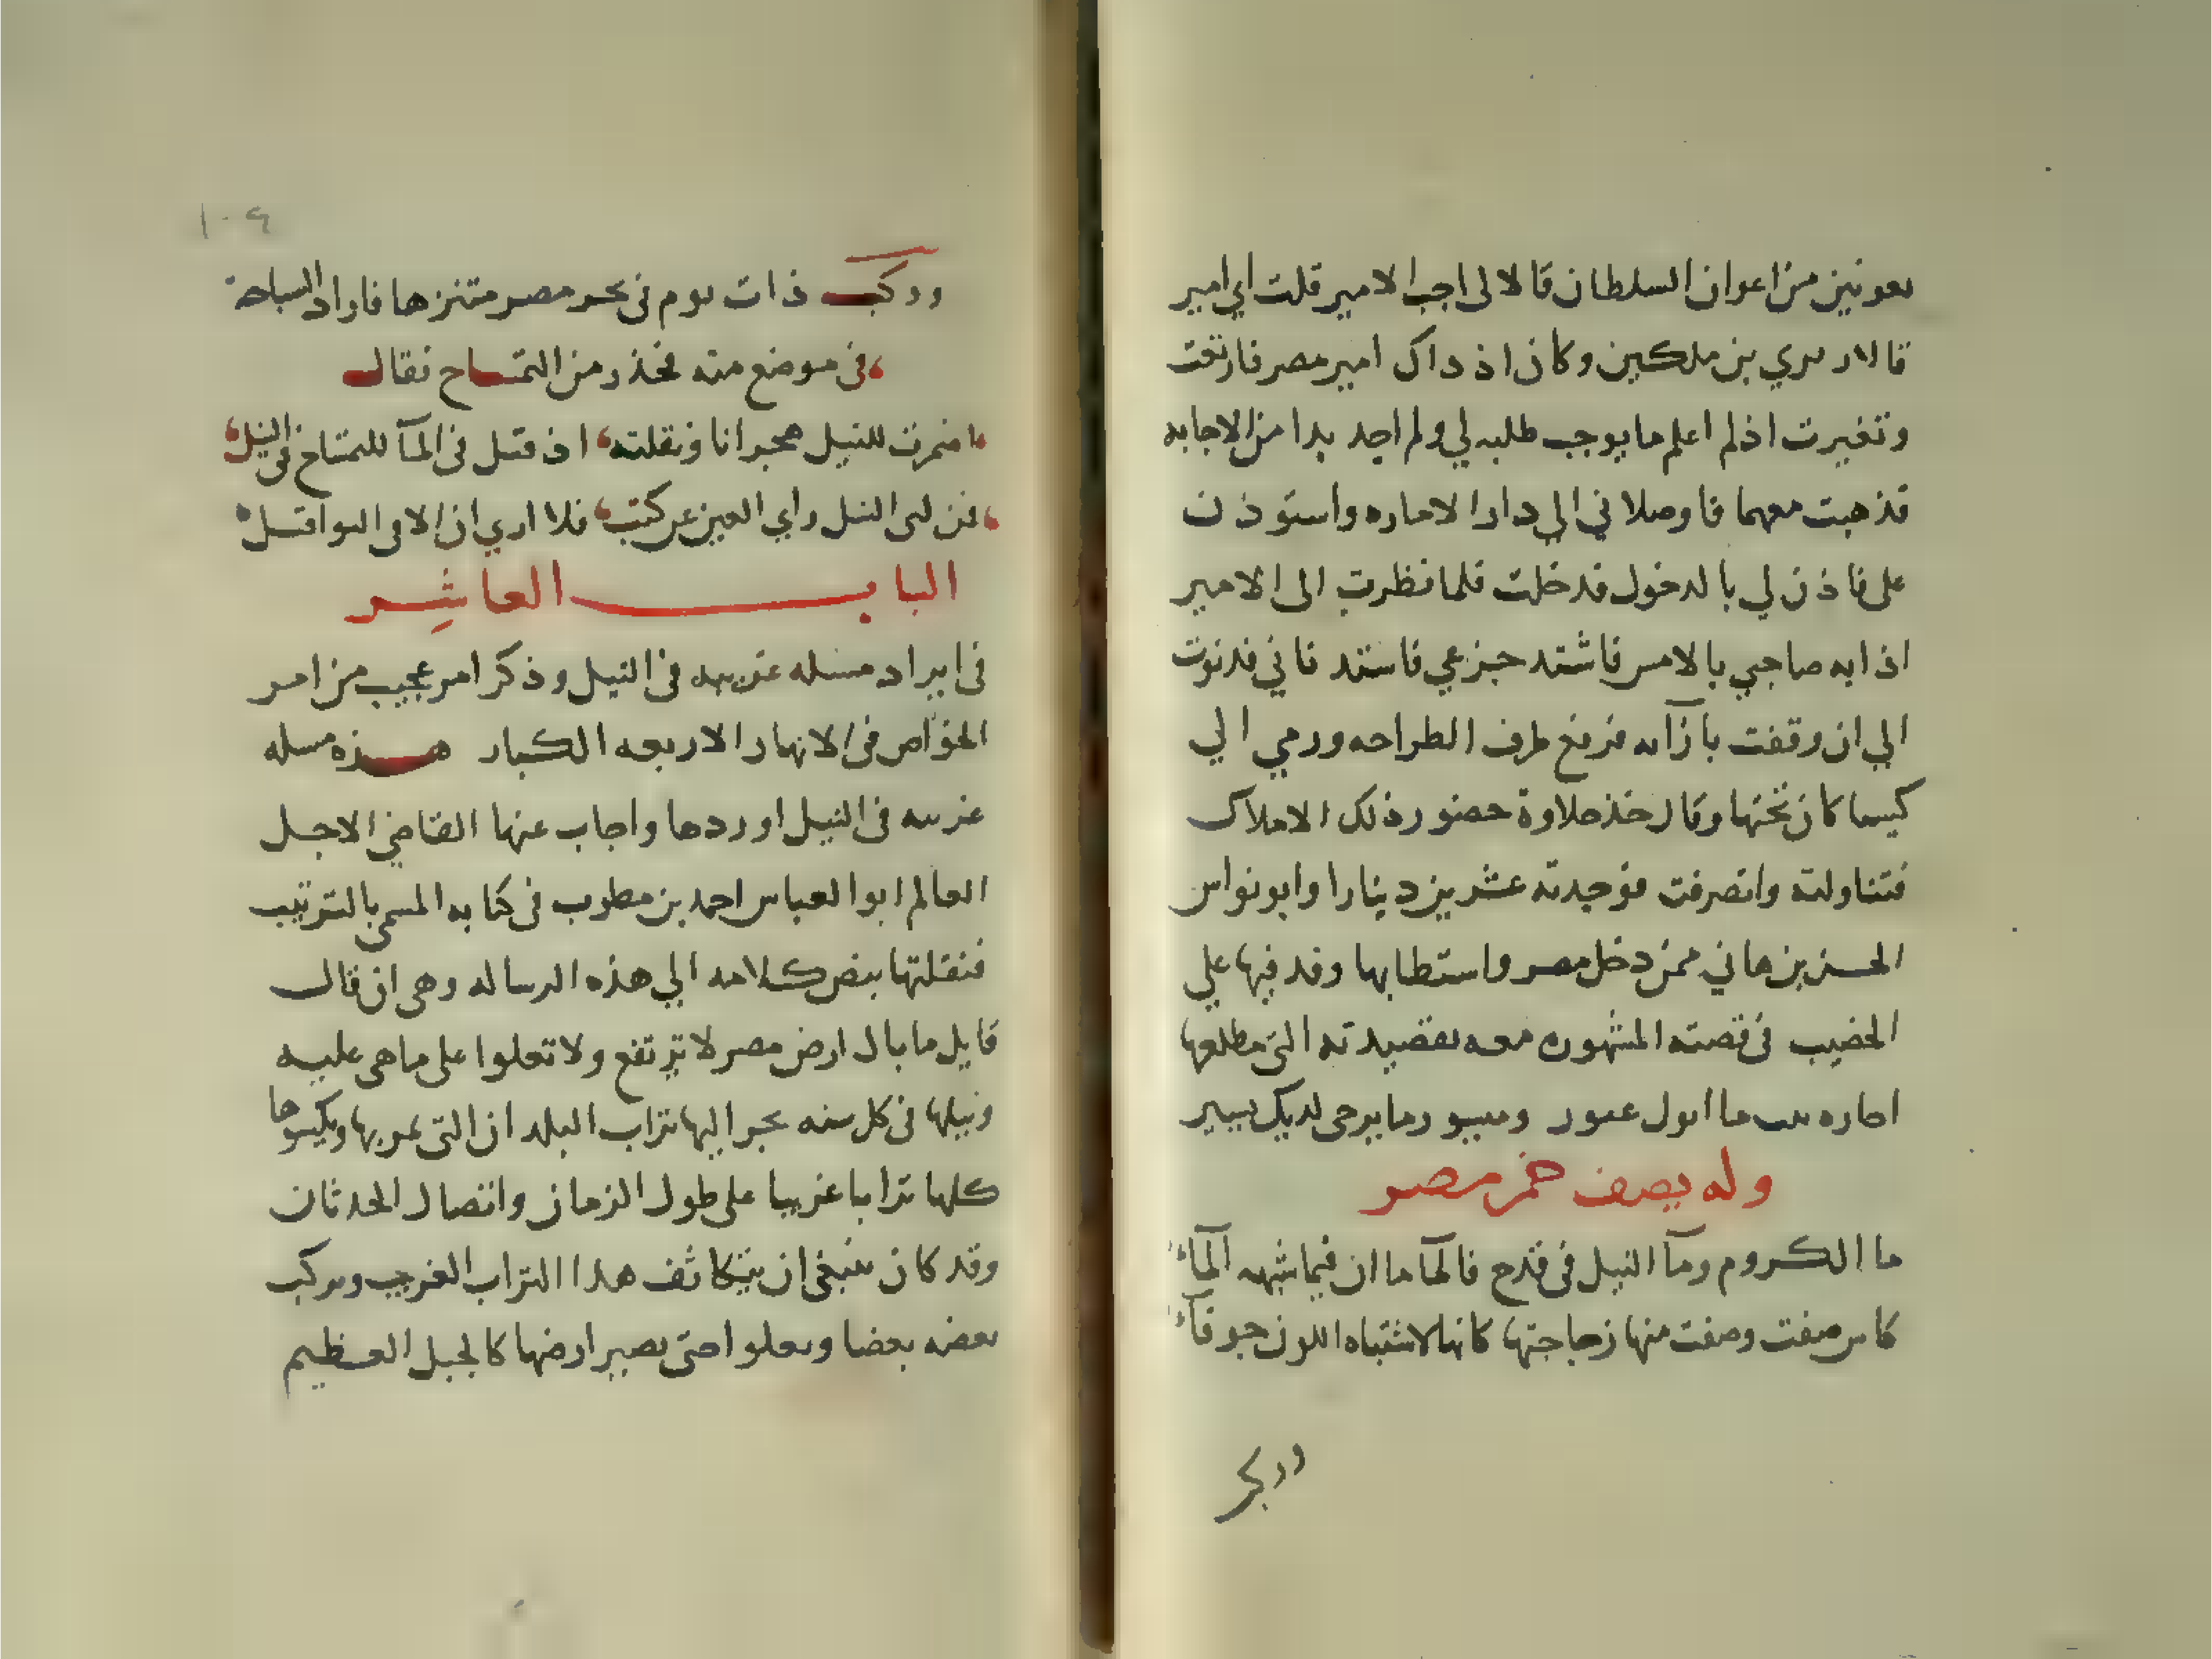 بعونين من اعوان السلطان قالا لى اجب الامير قلت اي امير
قالا بن ملكين وكان اذ داك امير مصر فارتعت
وتغيرت اذ لم اعلم ما يوجب طلبه لي ولم اجد بدا من الاجابه
فذهبت معهما فاوصلاني الي دار الاماره واستوذن
على فاذن لي بالدخول فدخلت فلما نظرت الى الامير
اذا به صاحبي بالامس فاشتد جزعي فاستدناني فدنوت
الي ان وقفت بازآيه فرفع طرف الطراحه ورمي الي
كيسا كان تحتها وقال خذ حلاوة حضور ذلك الاملاك
فتناولته وانصرفت فوجدته عشرين دينارا وابو نواس
الحسن بن هاني ممن دخل مصر واستطابها وفد فيها علي
الخصيب فى قصته المشهوره معه بقصيدته التى مطلعها
اجاره ما ابوك غيور وميسور ما يرجى لديك يسير
وله يصف خمر مصر
ما الكروم ومآ النيل فى قدح فالمآ ما ان فيما شبهه المآء
كاس صفت وصفت منها زجاجتها كانها لاشتباه اللون جوفآء
وركب
١٠٤
وركب ذات يوم فى بحر مصر متنزها فاراد السباحة
فى موضع منه فحذر من التمساح فقال
اضمرت للنيل هجرانا وتقلته اذ قيل فى المآ للتمساح فى النيل
فمن راي النيل راي العين عن كثب فلا اري النيل الا فى البواقيل
الباب العاشر
فى ايراد مسله غريبه فى النيل وذكر امر عجيب من امر
الخواص فى الانهار الاربعه الكبار هذه مسله
غريبه فى النيل اوردها واجاب عنها القاضي الاجل
العالم ابو العباس احمد بن مطرب فى كتابه المسمى بالترتيب
فنقلتها بنص كلامه الي هذه الرساله وهى ان قال
قايل ما بال ارض مصر لا ترتفع ولا تعلوا على ماهى عليه
ونيلها فى كل سنه يجر اليها تراب البلدان التى يمر بها ويكسوها
كلها ترابا غريبا على طول الزمان واتصال الحدثان
وقد كان ينبغى ان يتكاثف هدا التراب الغريب ويركب
بعضه بعضا ويعلوا حتى يصير ارضها كالجبل العظيم